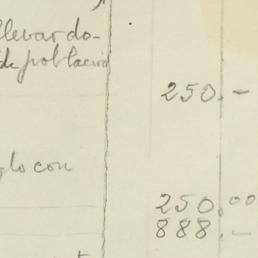 llevar do-
de població
250.-
glo con
250.00
888.-